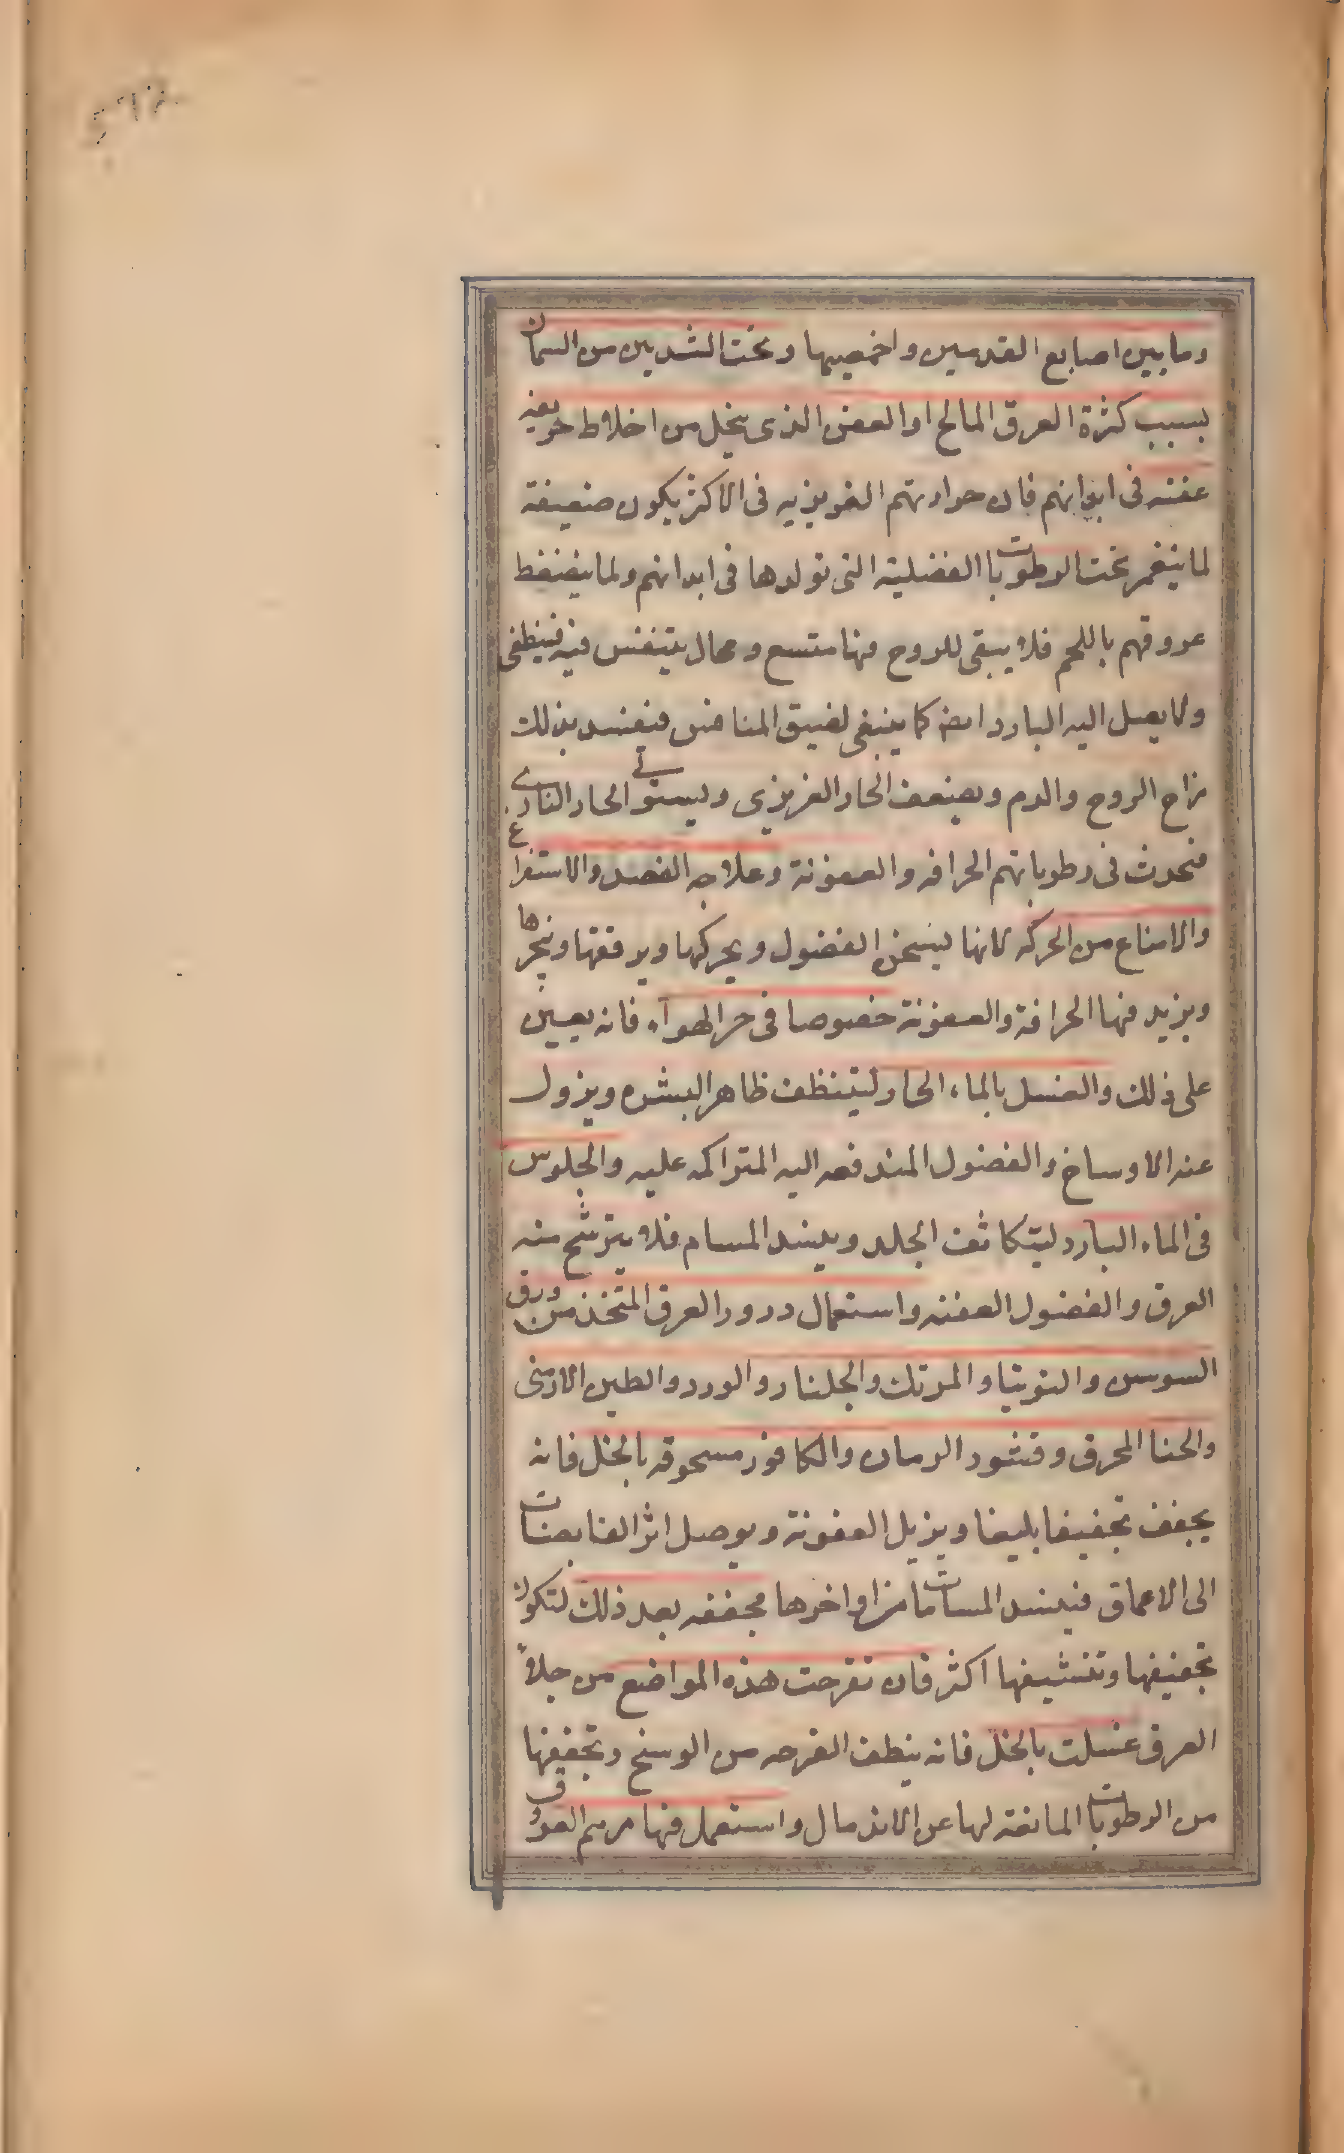 وما بين اصابع القدمين واخمصيها وتحت الثديين من السمان
بسبب كثرة العرق المالح او العفن الذى يتحلل من اخلاط حريفه
عفنه فى ابدانهم فان حرارتهم الغريزيه فى الاكثر يكون ضعيفة
لما ينغمر تحت الرطوبات الفضلية التى تولدها فى ابدانهم ولما ينضغط
عروقهم باللحم فلا يبقى للروح فيها متسع ومجال يتنفس فيه فينطفى
ولا يصل اليه البارد ايضا كما ينبغى لضيق المنافس فيفسد بذلك
مزاج الروح والدم ويضعف الحار الغريزى ويستولى الحار النارى
فتحدث فى رطوباتهم الحرافه والعفونة وعلاجه الفصد والاستفراغ
والامتناع من الحركه لانها يسخن الفضول ويحركها ويرققها ويبخرها
ويزيد فيها الحرافة والعفونة خصوصا فى حر الهوآء فانه يعين
على ذلك والغسل بالماء الحار ليتنظف ظاهر البشره ويزول
عنه الاوساخ والفضول المندفعه اليه المتراكمه عليه والجلوس
فى الماء البارد ليتكاثف الجلد وينسد المسام فلا يترشح منه
العرق والفضول العفنه واستعمال ذرور العرق المتخذ من ورق
السوسن والتوتيا والمرتك والجلنار والورد والطين الارمنى
والحنا المحرق وقشور الرمان والكافور مسحوقه بالخل فانه
يجفف تجفيفا بليغا ويزيل العفونة ويوصل اثر القابضات
الى الاعماق فينسد المسامات من اواخرها مجففه بعد ذلك لتكون
تجفيفها وتنشيفها اكثر فان تقرحت هذه المواضع من جلاء
العرق غسلت بالخل فانه ينظف القرحه من الوسخ وتجففها
من الرطوبات المانعة لها عن الاندمال واستعمل فيها مرهم العرق